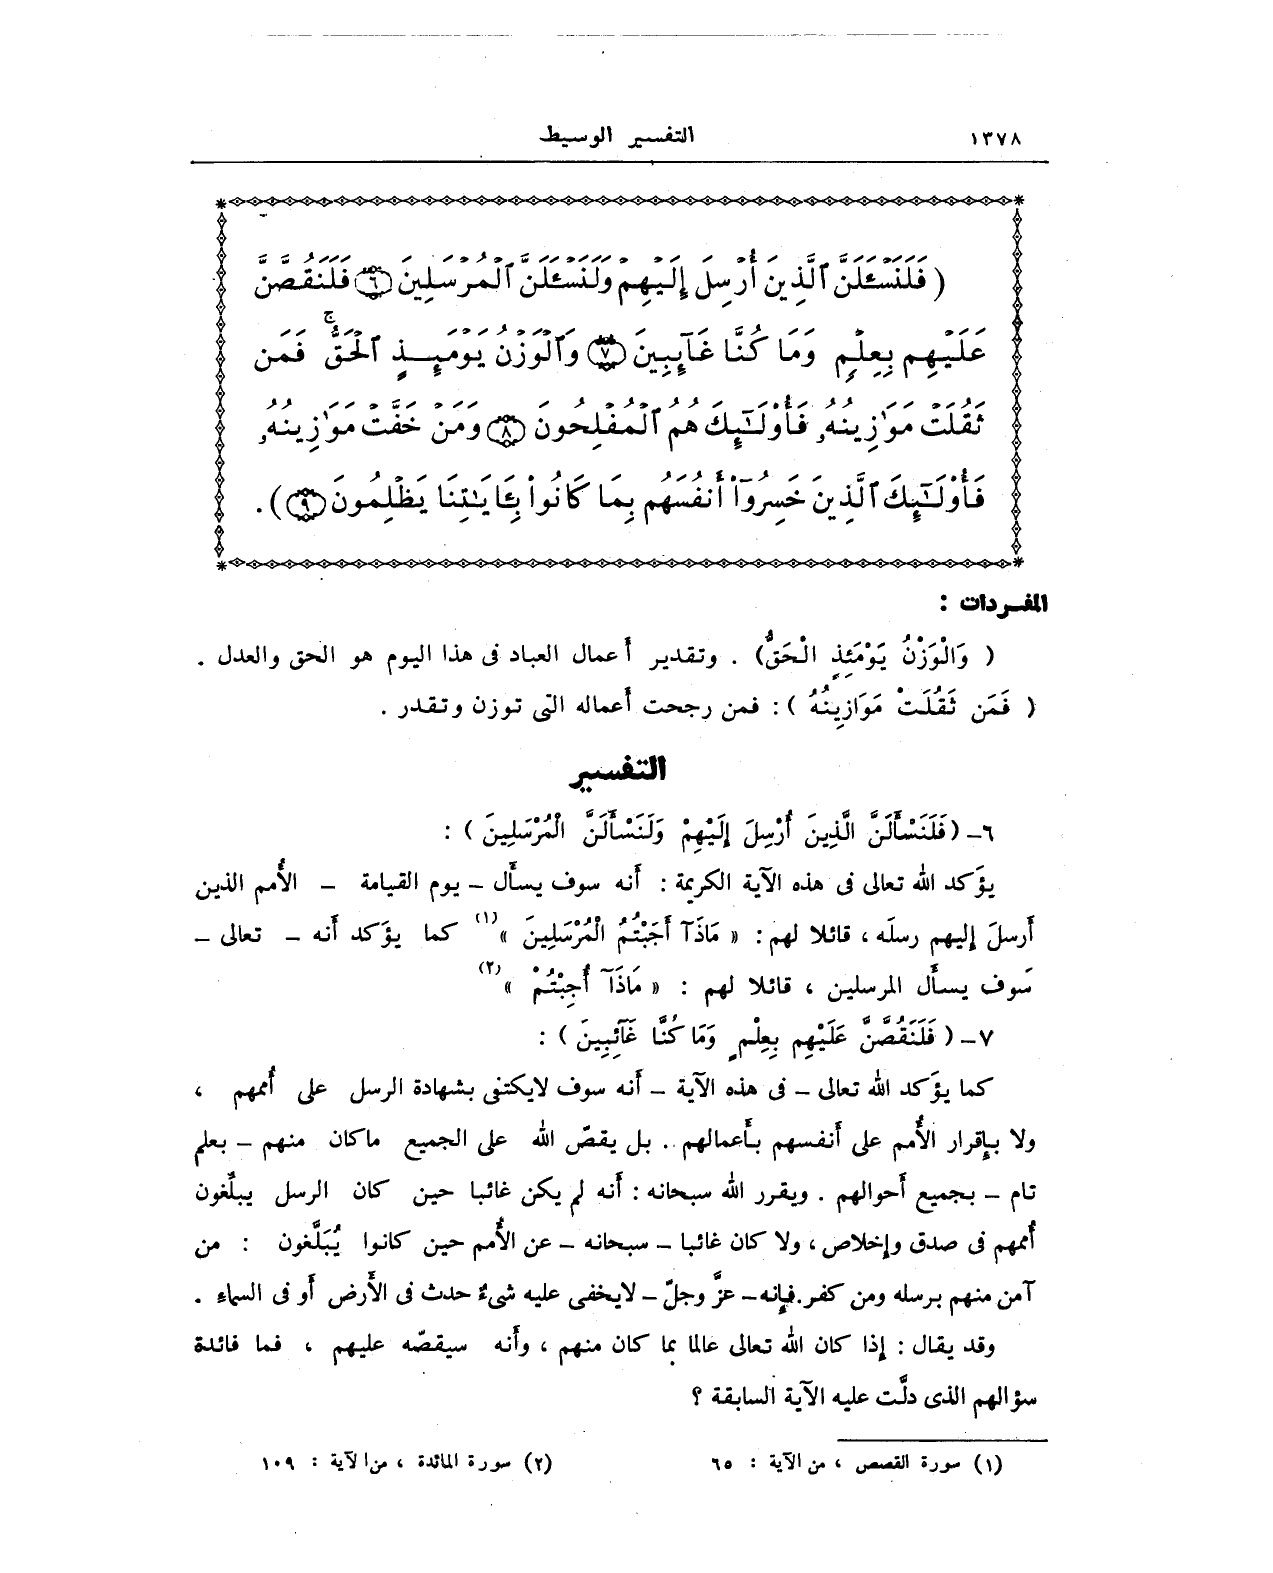 ١٣٧٨ التفسير الوسيط
( فَلَنَسْـَٔلَنَّ ٱلَّذِينَ أُرْسِلَ إِلَيْهِمْ وَلَنَسْـَٔلَنَّ ٱلْمُرْسَلِينَ ۝٦ فَلَنَقُصَّنَّ
عَلَيْهِم بِعِلْمٍ وَمَا كُنَّا غَآئِبِينَ ۝٧ وَٱلْوَزْنُ يَوْمَئِذٍ ٱلْحَقُّ ۚ فَمَن
ثَقُلَتْ مَوَٰزِينُهُۥ فَأُوْلَـٰٓئِكَ هُمُ ٱلْمُفْلِحُونَ ۝٨ وَمَنْ خَفَّتْ مَوَٰزِينُهُۥ
فَأُوْلَـٰٓئِكَ ٱلَّذِينَ خَسِرُوٓاْ أَنفُسَهُم بِمَا كَانُواْ بِـَٔايَـٰتِنَا يَظْلِمُونَ ۝٩ ) .
المفـردات :
( وَالْوَزْنُ يَوْمَئِذٍ الْحَقُّ) . وتقدير أعمال العباد فى هذا اليوم هو الحق والعدل .
( فَمَن ثَقُلَتْ مَوَازِينُهُ ) : فمن رجحت أعماله التى توزن وتقدر .
التفسير
٦ـ ( فَلَنَسْأَلَنَّ الَّذِينَ أُرْسِلَ إِلَيْهِمْ وَلَنَسْأَلَنَّ الْمُرْسَلِينَ ) :
يؤكد الله تعالى فى هذه الآية الكريمة : أنه سوف يسأل ــ يوم القيامة ــ الأمم الذين
أرسلَ إليهم رسلَه ، قائلا لهم : « مَاذَآ أَجَبْتُمُ الْمُرْسَلِينَ » (١) كما يؤكد أنه ــ تعالى ــ
سَوف يسأل المرسلين ، قائلا لهم : « مَاذَآ أُجِبْتُمْ » (٢)
٧ـ ( فَلَنَقُصَّنَّ عَلَيْهِم بِعِلْمٍ وَمَا كُنَّا غَآئِبِينَ ) :
كما يؤكد الله تعالى ــ فى هذه الآية ــ أنه سوف لايكتفى بشهادة الرسل على أُممهم ،
ولا بإقرار الأُمم على أنفسهم بأعمالهم .. بل يقصّ الله على الجميع ماكان منهم ــ بعلم
تام ــ بجميع أحوالهم . ويقرر الله سبحانه : أنه لم يكن غائبا حين كان الرسل يبلِّغون
أُممهم فى صدق وإخلاص ، ولا كان غائبا ــ سبحانه ــ عن الأُمم حين كانوا يُبَلَّغون : من
آمن منهم برسله ومن كفر. فإنه ــ عزَّ وجلّ ــ لايخفى عليه شىءٌ حدث فى الأرض أو فى السماء .
وقد يقال : إذا كان الله تعالى عالما بما كان منهم ، وأنه سيقصّه عليهم ، فما فائدة
سؤالهم الذى دلَّت عليه الآية السابقة ؟
(١) سورة القصص ، من الآية : ٦٥ (٢) سورة المائدة ، من الآية : ١٠٩